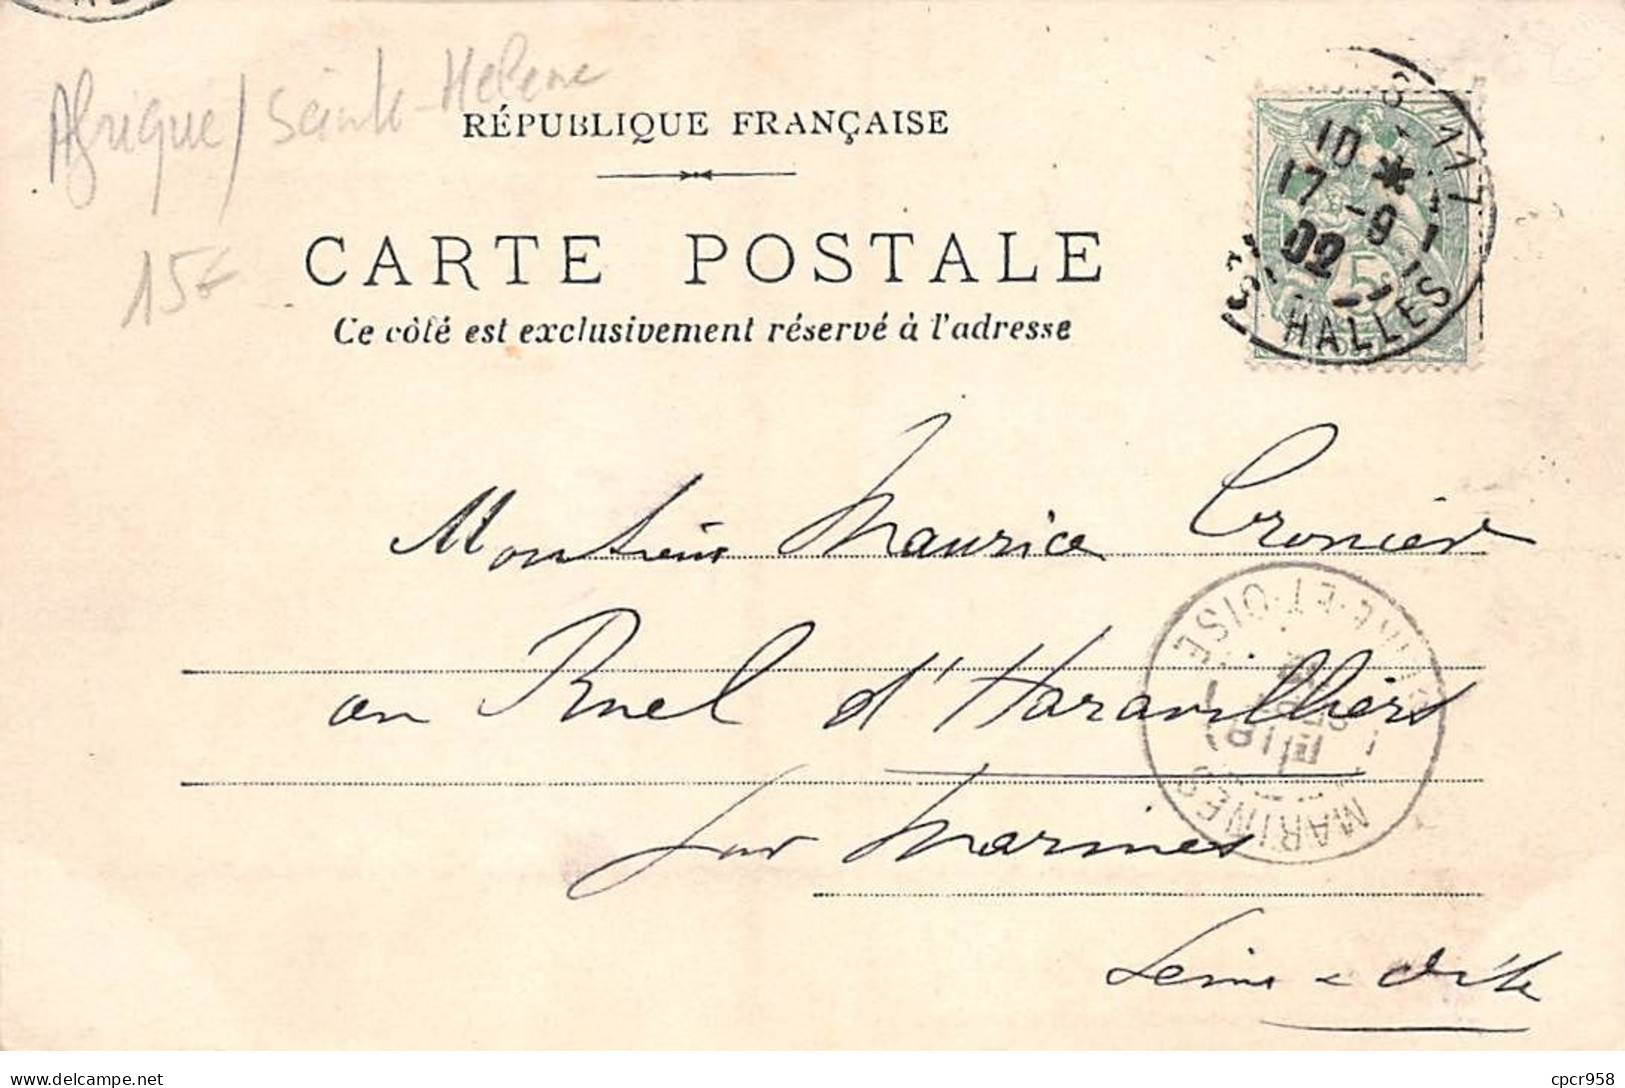 Afrique / Sainte-Helene
15€
RÉPUBLIQUE FRANÇAISE
CARTE POSTALE
Ce côté est exclusivement réservé à l'adresse
117
10 *
17 -9
02
5
HALLES
Monsieur Maurice Cronier
au Ruel d'Haravilliers
sur Marines
Seine & Oise
MARINES
SEINE-ET-OISE
delcampe.net
cpcr958